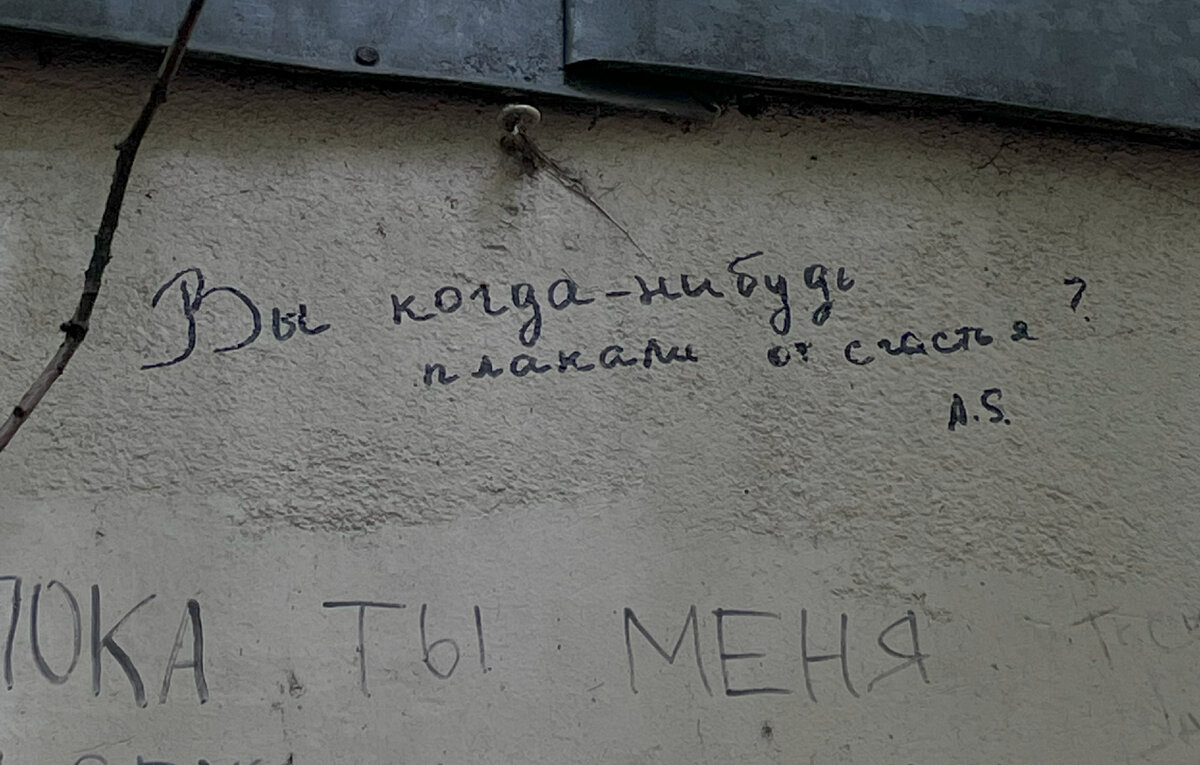 Вы когда-нибудь
плакали от счастья?
A.S.
ПОКА ТЫ МЕНЯ